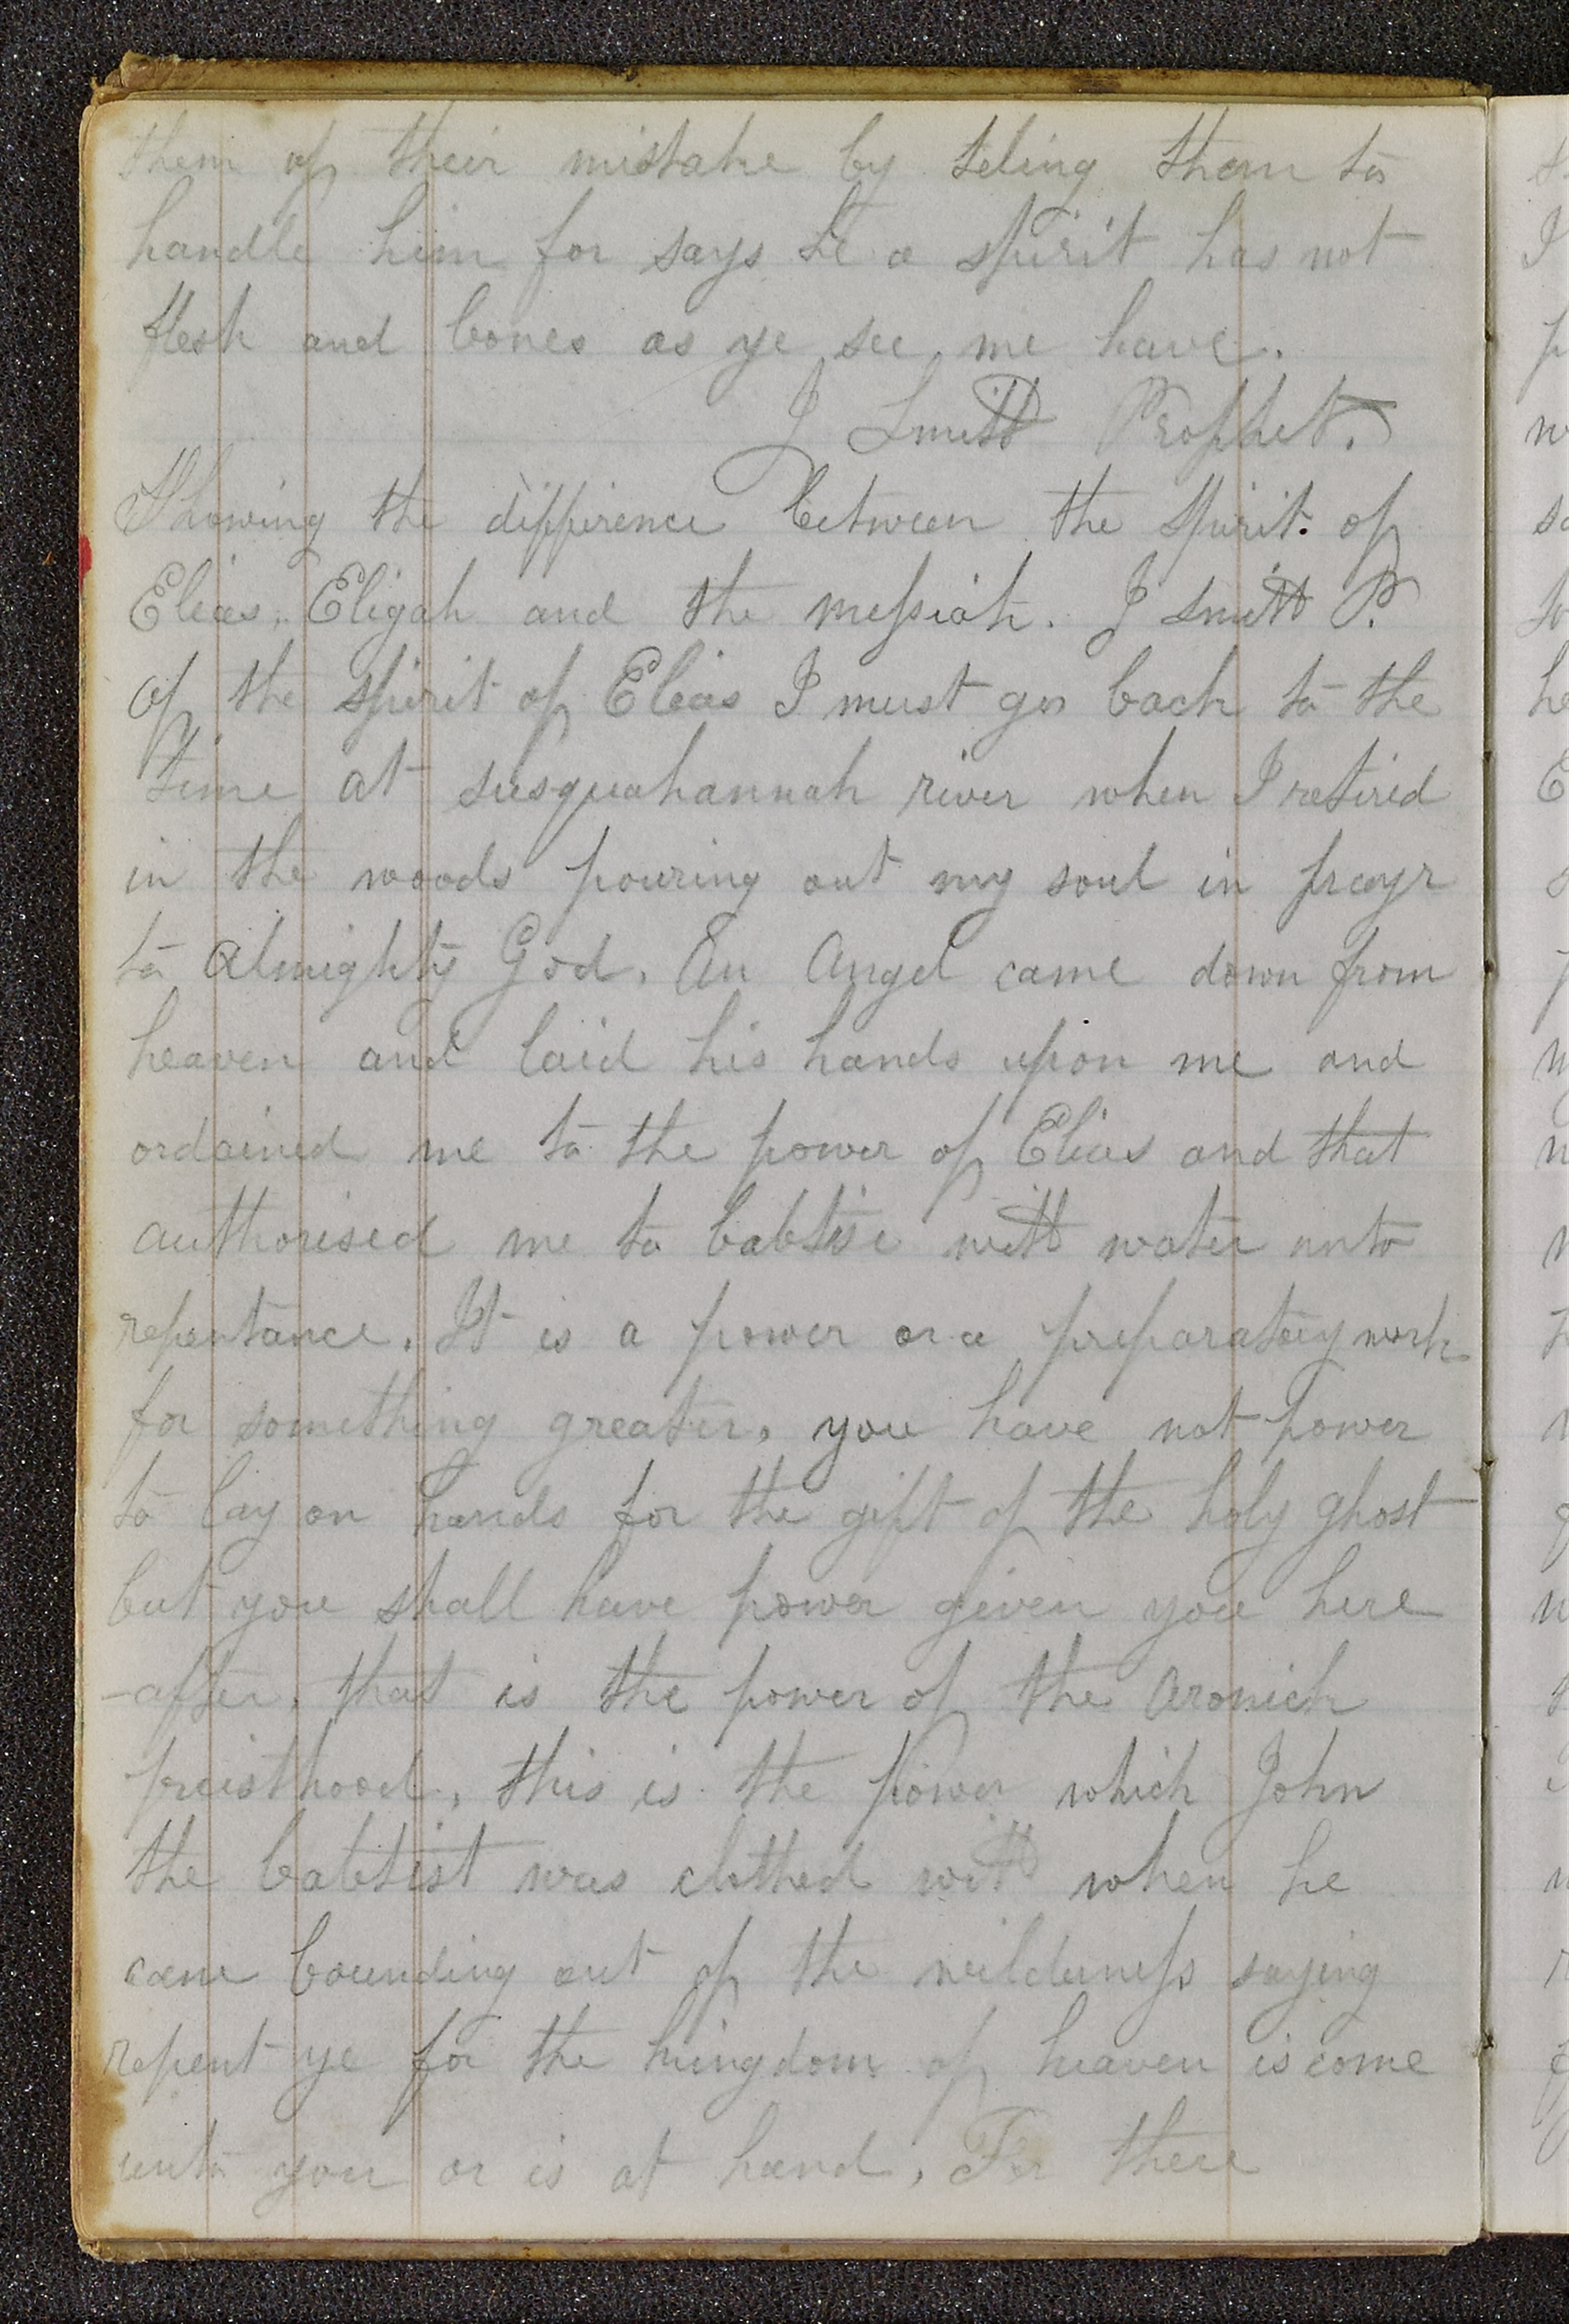 them of their mistake by teling them to
handle him for says he a spirit has not
flesh and bones as ye see me have.
J Smith Prophet.
Showing the difference between the Spirit of
Elias, Eligah and the messiah. J Smith P.
of the spirit of Elias I must go back to the
time at susquahannah river when I retired
in the woods pouring out my soul in prayr
to Almighty God. An Angel came down from
heaven and laid his hands upon me and
ordained me to the power of Elias and that
authorised me to babtise with water unto
repentance. It is a power or a preparatory work
for something greater, you have not power
to lay on hands for the gift of the holy ghost
but you shall have power given you here
-after, that is the power of the Aronick
preisthood, this is the power which John
the babtist was clothed with when he
came bounding out of the wilderness saying
repent ye for the kingdom of heaven is come
unto you or is at hand, For there